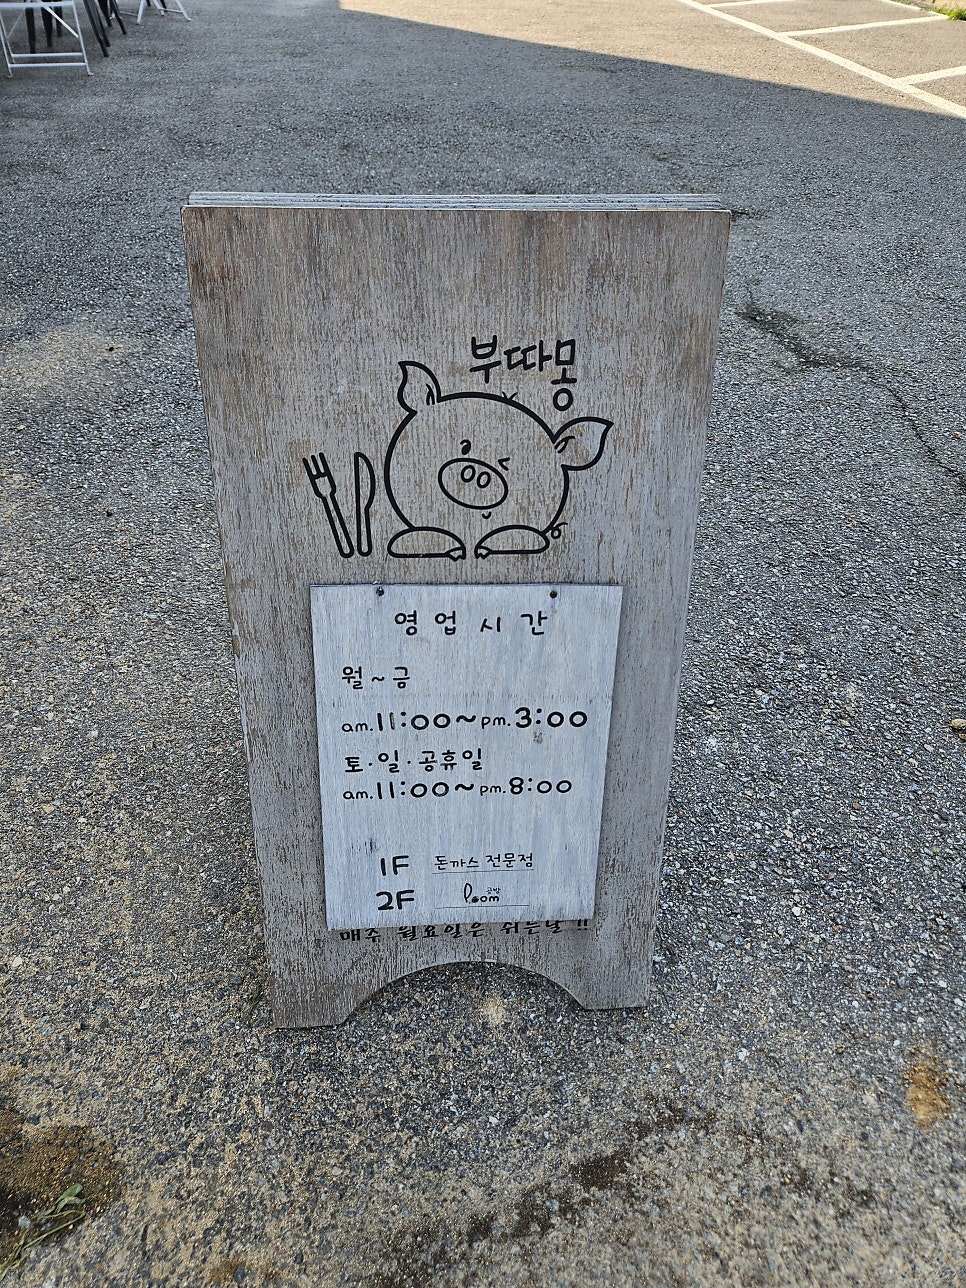 부따몽
영업시간
월~금
am.11:00~pm.3:00
토·일·공휴일
am.11:00~pm.8:00
1F 돈까스 전문점
2F 공방 Loom
매주 월요일은 쉬는날!!